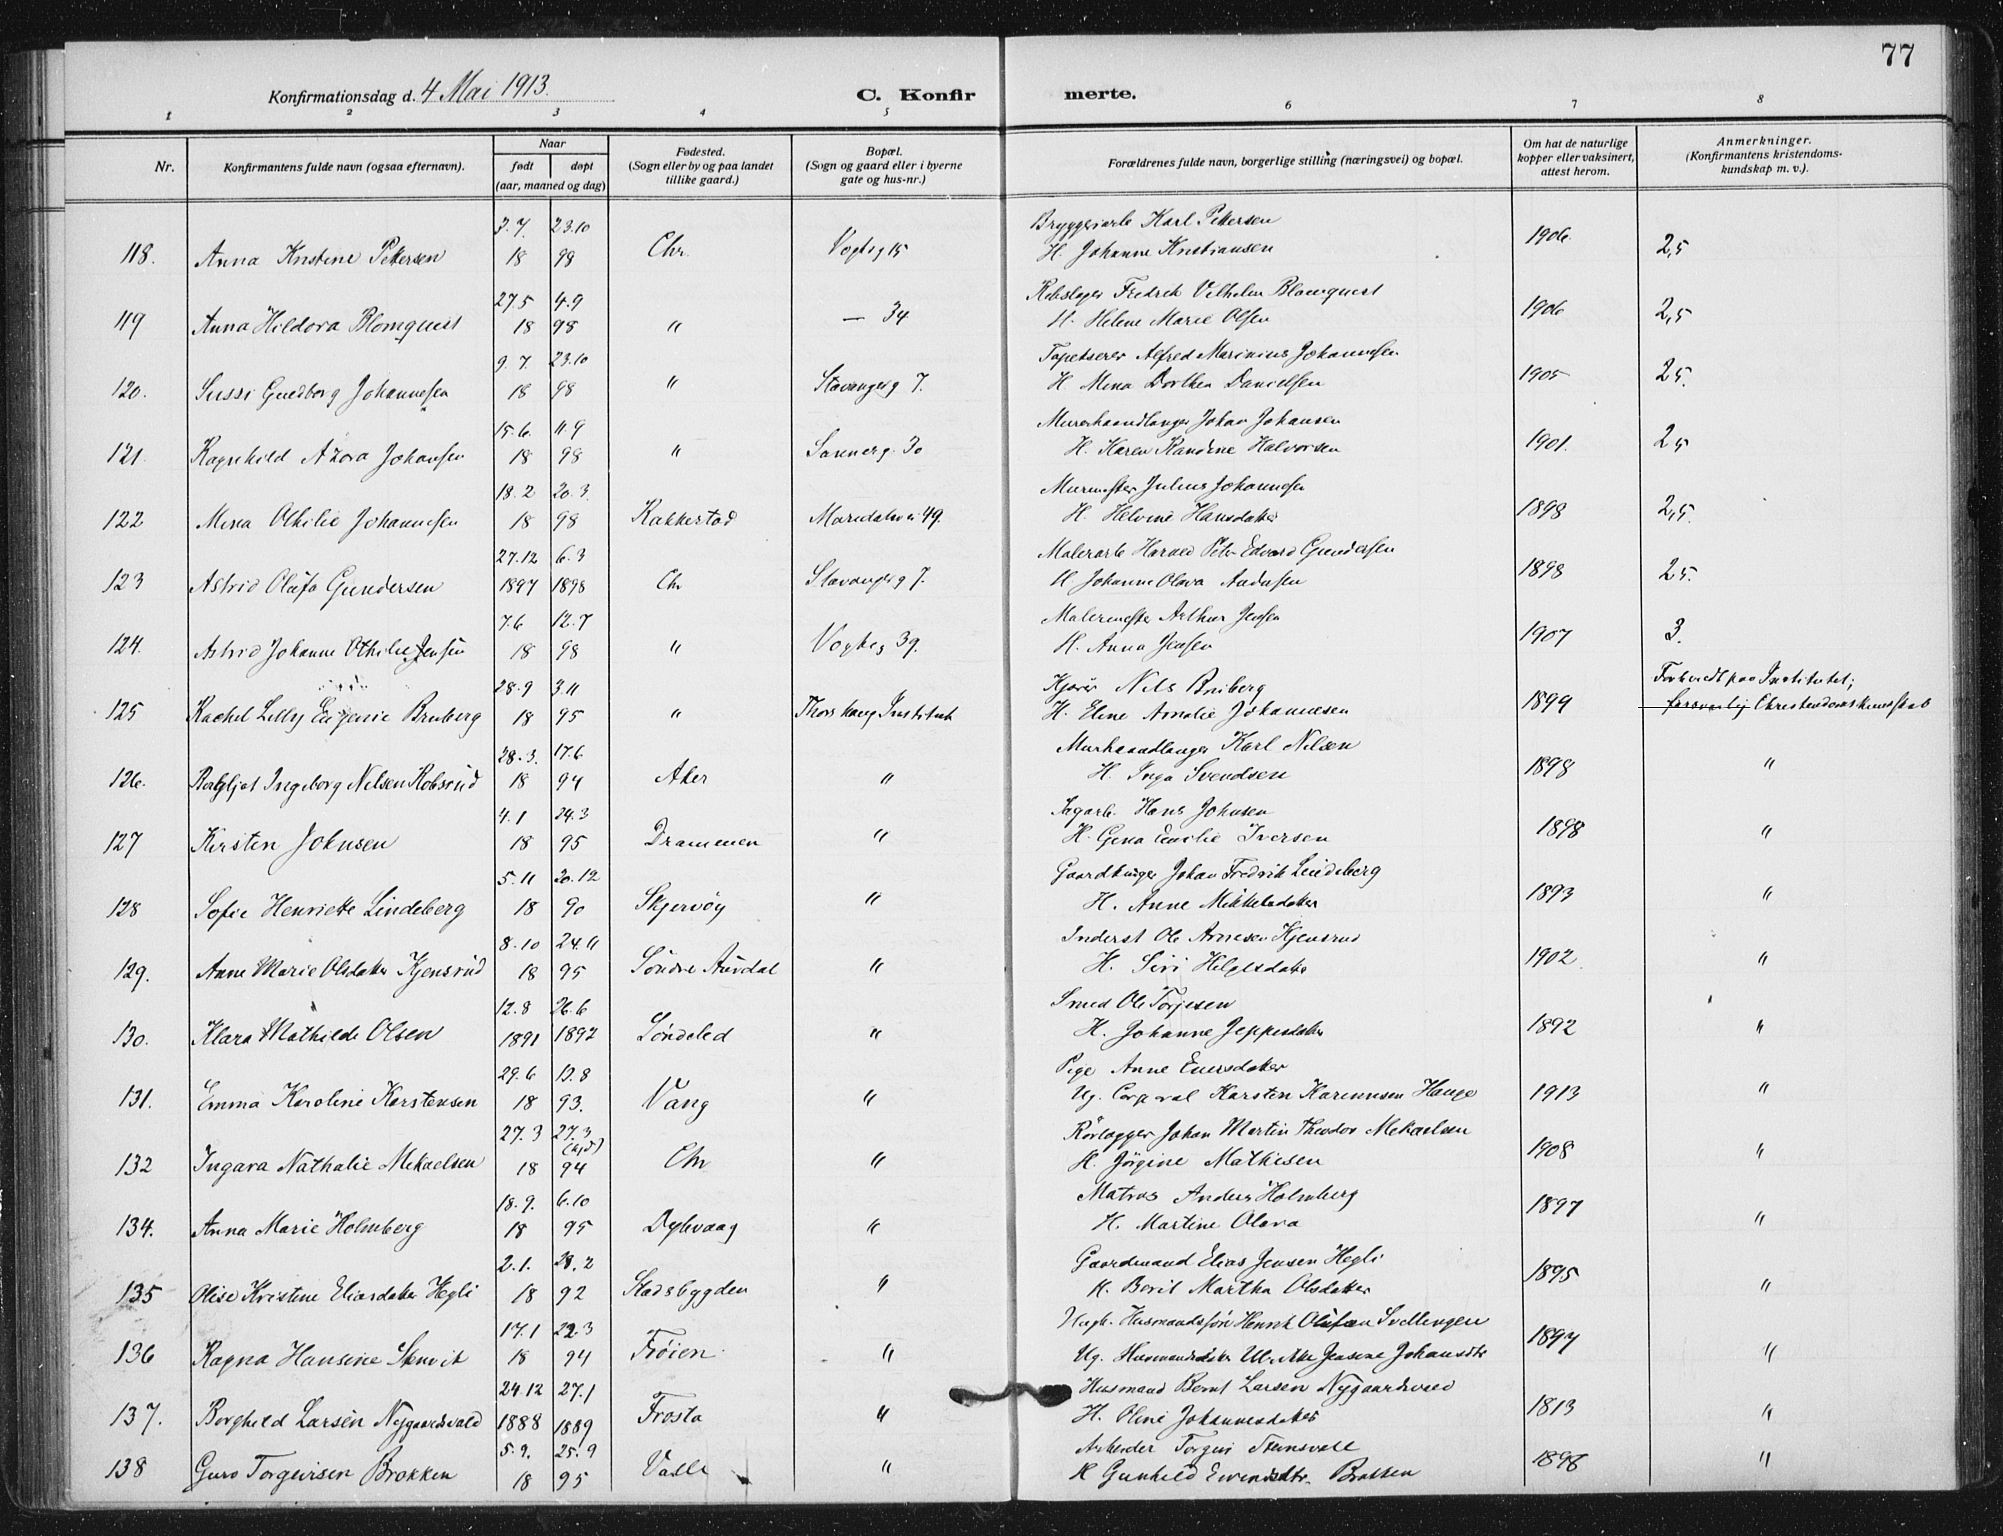 77
Konfirmationsdag d. 4 Mai 1913.
C. Konfirmerte.
1 2 3 4 5 6 7 8
Nr.
Konfirmantens fulde navn (ogsaa efternavn).
Naar
født døpt
(aar, maaned og dag)
Fødested.
(Sogn eller by og paa landet
tillike gaard.)
Bopæl.
(Sogn og gaard eller i byerne
gate og hus-nr.)
Forældrenes fulde navn, borgerlige stilling (næringsvei) og bopæl.
Om hat de naturlige
kopper eller vaksinert,
attest herom.
Anmerkninger.
(Konfirmantens kristendoms-
kundskap m. v.).
3.7 23.10 Bryggeriarb Karl Pettersen
118. Anna Kristine Pettersen 18 98 Chr. Vogtsg 15 H. Johanne Kristiansen 1906. 2,5
27.5 4.9 Rebslager Fredrik Vilhelm Blomquist
119 Anna Hildora Blomquist 18 98 " — 34 H. Helene Marie Olsen 1906 2,5
9.7. 23.10 Tapetserer Alfred Marinius Johannesen
120. Sussi Guedborg Johannesen 18 98 " Stavangerg 7. H. Mina Dorthea Danielsen 1905 25.
15.6. 11 9 Murerhaandlanger Johan Johansen
121. Ragnhild Azora Johansen 18 98 " Sannerg. 30 H. Karen Randine Halvorsen 1901. 25
18.2 20.3. Murmester Julius Johannesen
122 Mina Othilie Johannesen 18 98 Rakkestad Maridalsvei 49. H. Helvine Hansdatter 1898 2,5.
27.12 6.3 Malerarb Harald Petr Edvard Gundersen
123 Astrid Olufa Gundersen 1897 1898 Chr Stavangerg 7. H Johanne Olava Andersen 1898 25.
7.6 12.7 Malermester Arthur Jensen
124. Astrid Johanne Othilie Jensen 18 98 " Vogtsg 39. H. Anna Jensen 1907 3.
28.9 3.11 Kjører Nils Bruberg Forberedt paa Institutet;
125 Rachel Lilly Eugenie Bruberg 18 95 " Thorshaug Institut H. Eline Amalie Johannesen 1899 forsvarlig Christendomskundskab
28.3. 17.6 Murhaandlanger Karl Nilsen
126. Ragljot Ingeborg Nilsen Robsrud 18 94 Aker " H. Inga Svendsen 1898 "
4.1 24.3 Sagarb. Hans Johnsen
127 Kirsten Johnsen 18 95 Drammen " H. Gina Emilie Iversen 1898 "
5.11 20.12 Gaardbruger Johan Fredrik Lindeberg
128 Sofie Henriette Lindeberg 18 90 Skjervøy " H. Anne Mikkelsdatter 1893 "
8.10 24.11 Inderst Ole Arnesen Kjensrud
129. Anne Marie Olsdatter Kjensrud 18 95 Søndre Aurdal " H. Siri Helgesdatter 1902 "
12.8 26.6 Smed Ole Torjesen
130. Klara Mathilde Olsen 1891 1892 Søndeled " H. Johanne Jeppesdatter 1892 "
29.6 13.8 Pige Anne Evensdatter
131. Emma Karoline Karstensen 18 93. Vang " Ug. Corporal Karsten Karenusen Hauge 1913 "
27.3 27.3 Rørlægger Johan Martin Theodor Mekaelsen
132 Ingara Nathalie Mekaelsen 18 94 Chr " H. Jørgine Mathisen 1908 "
18.9. 6.10 Matros Anders Holmberg
134. Anna Marie Holmberg 18 95 Dybvaag " H. Martine Olava 1897 "
2.1. 28.2 Gaardmand Elias Jensen Hegli
135 Olise Kristine Eliasdatter Hegli 18 92 Stadsbygden " H. Berit Martha Olsdatter 1895 "
17.1 22.3 Ungk. Husmandssøn Henrik Olufsen Svellingen
136 Ragna Hansine 18 94 Frøien " Ug. Husmandsdatter Jensine Johansdtr 1897 "
24.12 27.1 Husmand Bernt Larsen Nygaardsvald
137. Borghild Larsen Nygaardsvald 1888 1889 Frosta " H. Oline Johannesdatter 1813 "
5.9. 25.9 Arbeider Torgeir Steinsvoll
138 Guro Torgeirsen Brokken 18 95 Valle " H Gunhild Eivindsdtr. Brokken 1898 "